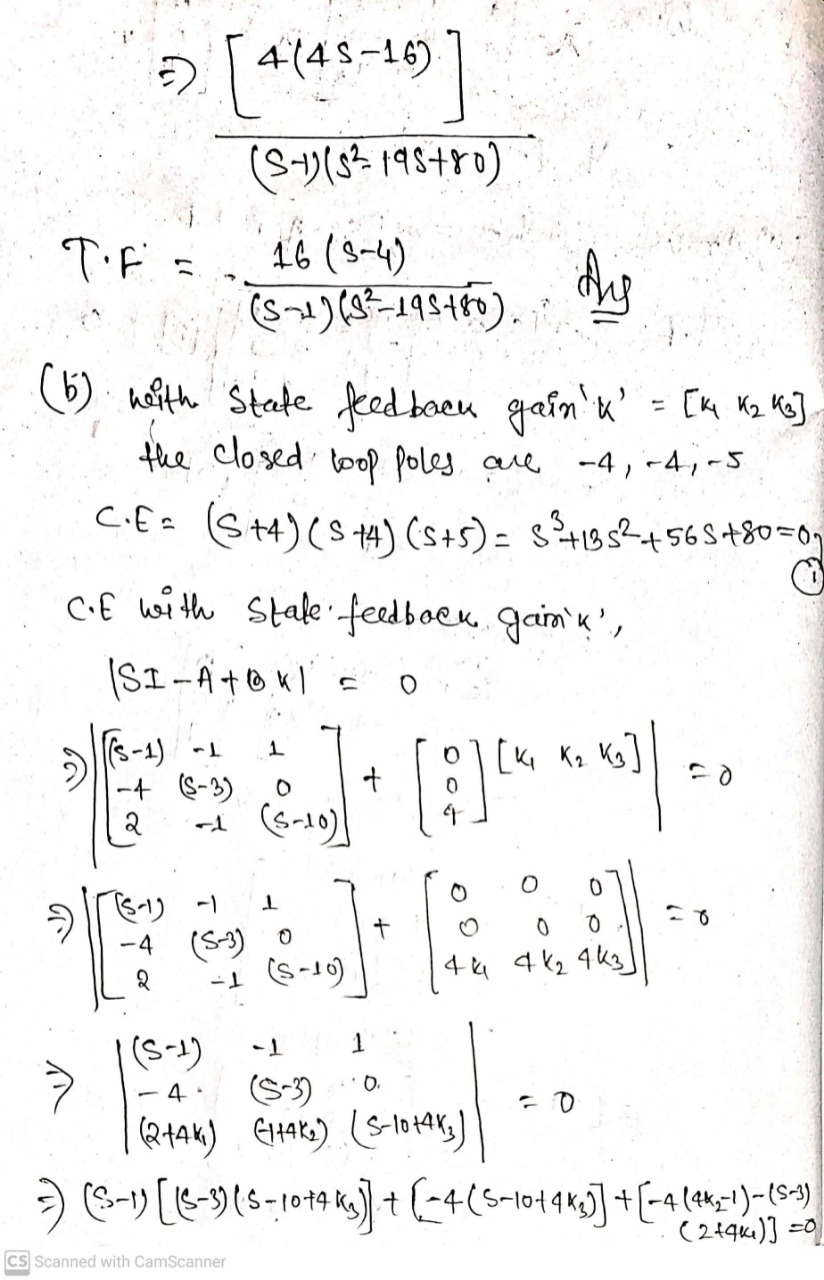 ⇒ [ 4(4s-16) ]
(S-1)(S²-19S+80)
T.F = 16(s-4)
(s-1)(s²-19s+80). Ans
(b) with State feedback gain 'k' = [k₁ k₂ k₃]
the closed loop poles are -4, -4, -5
C.E = (S+4)(S+4)(S+5) = s³+13s²+56s+80=0,
①
C.E with State feedback gain 'k',
|SI-A+BK| = 0
⇒ | [ (s-1) -1 1
-4 (s-3) 0
2 -1 (s-10) ] + [ 0
0
4 ] [k₁ k₂ k₃] | = 0
⇒ | [ (s-1) -1 1
-4 (s-3) 0
2 -1 (s-10) ] + [ 0 0 0
0 0 0
4k₁ 4k₂ 4k₃ ] | = 0
⇒ | (s-1) -1 1
-4 (s-3) 0
(2+4k₁) (-1+4k₂) (s-10+4k₃) | = 0
⇒ (s-1)[(s-3)(s-10+4k₃)] + [-4(s-10+4k₃)] + [-4(4k₂-1)-(s-3)
(2+4k₁)] = 0
CS Scanned with CamScanner